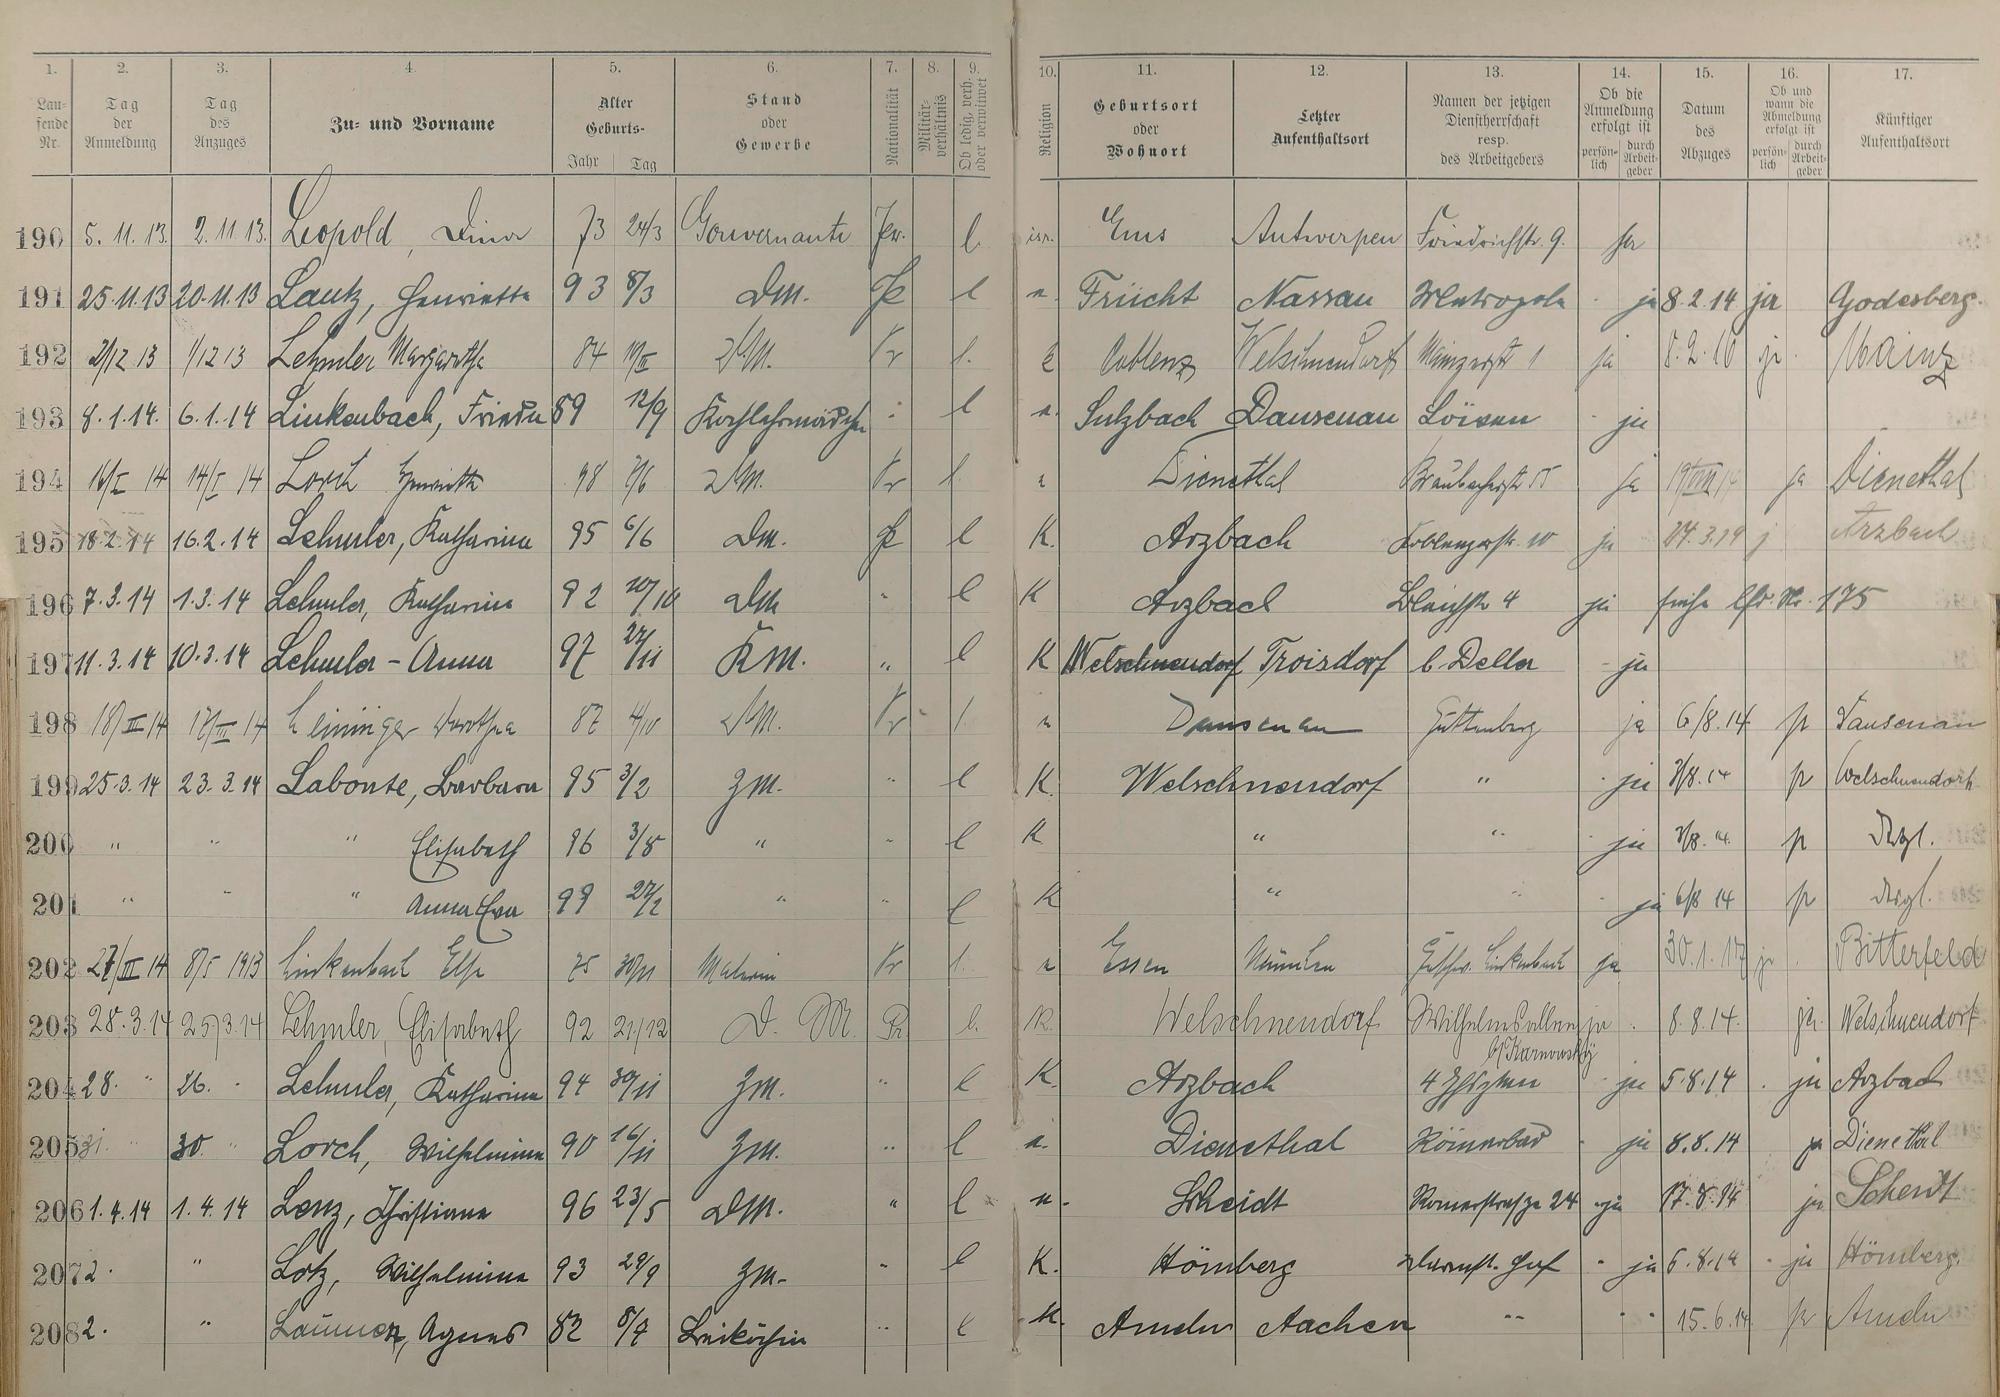 1. 2. 3. 4. 5. 6. 7. 8. 9. 10. 11. 12. 13. 14. 15. 16. 17.
Lau-fende Nr. Tag der Anmeldung Tag des Anzuges Zu- und Vorname Alter Geburts- Jahr Tag Stand oder Gewerbe Nationalität Militär-verhältnis Ob ledig, verh. oder verwitwet Religion Geburtsort oder Wohnort Letzter Aufenthaltsort Namen der jetzigen Dienstherrschaft resp. des Arbeitgebers Ob die Anmeldung erfolgt ist persön-lich durch Arbeit-geber Datum des Abzuges Ob und wann die Abmeldung erfolgt ist persön-lich durch Arbeit-geber Künftiger Aufenthaltsort
190 5. 11. 13. 2. 11 13. Leopold, Dina 73 24/3 Gouvernante l. isr. Ems Antwerpen Friedrichstr. 9.
191 25.11.13 20.11.13 Lautz, Henriette 93 8/3 Dm. l Frücht Nassau Metropole ja 8.2.14 ja Godesberg.
192 2/12 13 1/12 13 Lehmler Margarethe 84 Dm. Pr l. Coblenz Welschneudorf Mainzerstr 1 ja 8.2.16 ja. Mainz
193 8.1.14. 6.1.14 Linkenbach, Frieda 89 12/9 Kochlehrmädchen l Sulzbach Dausenau Löwen ja
194 16/I 14 14/I 14 Lorch Henriette 98 Dm. Pr l. Dienethal Braubacherstr 55 ja ja Dienethal
195 18.2.14 16.2.14 Lehmler, Katharina 95 6/6 Dm. l K. Arzbach Koblenzerstr. 10 ja Arzbach
196 7.3.14 1.3.14 Lehmler, Katharina 92 10/10 Dm " l K Arzbach Bleichstr 4 ja siehe lfd. Nr. 175
197 11.3.14 10.3.14 Lehmler - Anna 97 27/11 Km. " l K Welschneudorf Troisdorf b. Deller - ja
198 18/III 14 17/III 14 Leininger Dorothea 87 4/10 Dm. Pr l. Dausenau Guttenberg ja 6/8.14 Dausenau
199 25.3.14 23.3.14 Labonte, Barbara 95 3/2 Zm. " l K. Welschneudorf " ja 7/8.14 Welschneudorf
200 " " " Elisabeth 96 3/8 " " l K " " ja 7/8.14. Dsgl.
201 " " " Anna Eva 99 27/2 " " l K " " ja 6/8 14 Dsgl.
202 27/III 14 8/5 1913 Linkenbach Else 75 30/11 Malerin Pr l. Essen München Geschw. Linkenbach ja 30.1.17 Bitterfeld
203 28.3.14 25/3.14 Lehmler, Elisabeth 92 21/12 D. M. Pr l. K. Welschneudorf Wilhelmsallee ja 8.8.14. ja. Welschneudorf
b/Karnowsky
204 28. " 26. " Lehmler, Katharina 94 30/11 Zm. " l K. Arzbach 4 ja 5.8.14 ja Arzbach
205 31. " 30. " Lorch, Wilhelmine 90 16/11 Zm. " l Dienethal Römerbad ja 8.8.14 ja Dienethal
206 1.4.14 1.4.14 Lenz, Christiane 96 23/5 Dm. " l Scheidt Römerstraße 24 ja 17.8.14 ja Scheidt
207 2. " Lotz, Wilhelmine 93 29/9 Zm. " l K. Hömberg Darmst. Hof ja 6.8.14 ja Hömberg.
208 2. " Agnes 82 8/7 Beiköchin " l K. Aachen " " 15.6.14